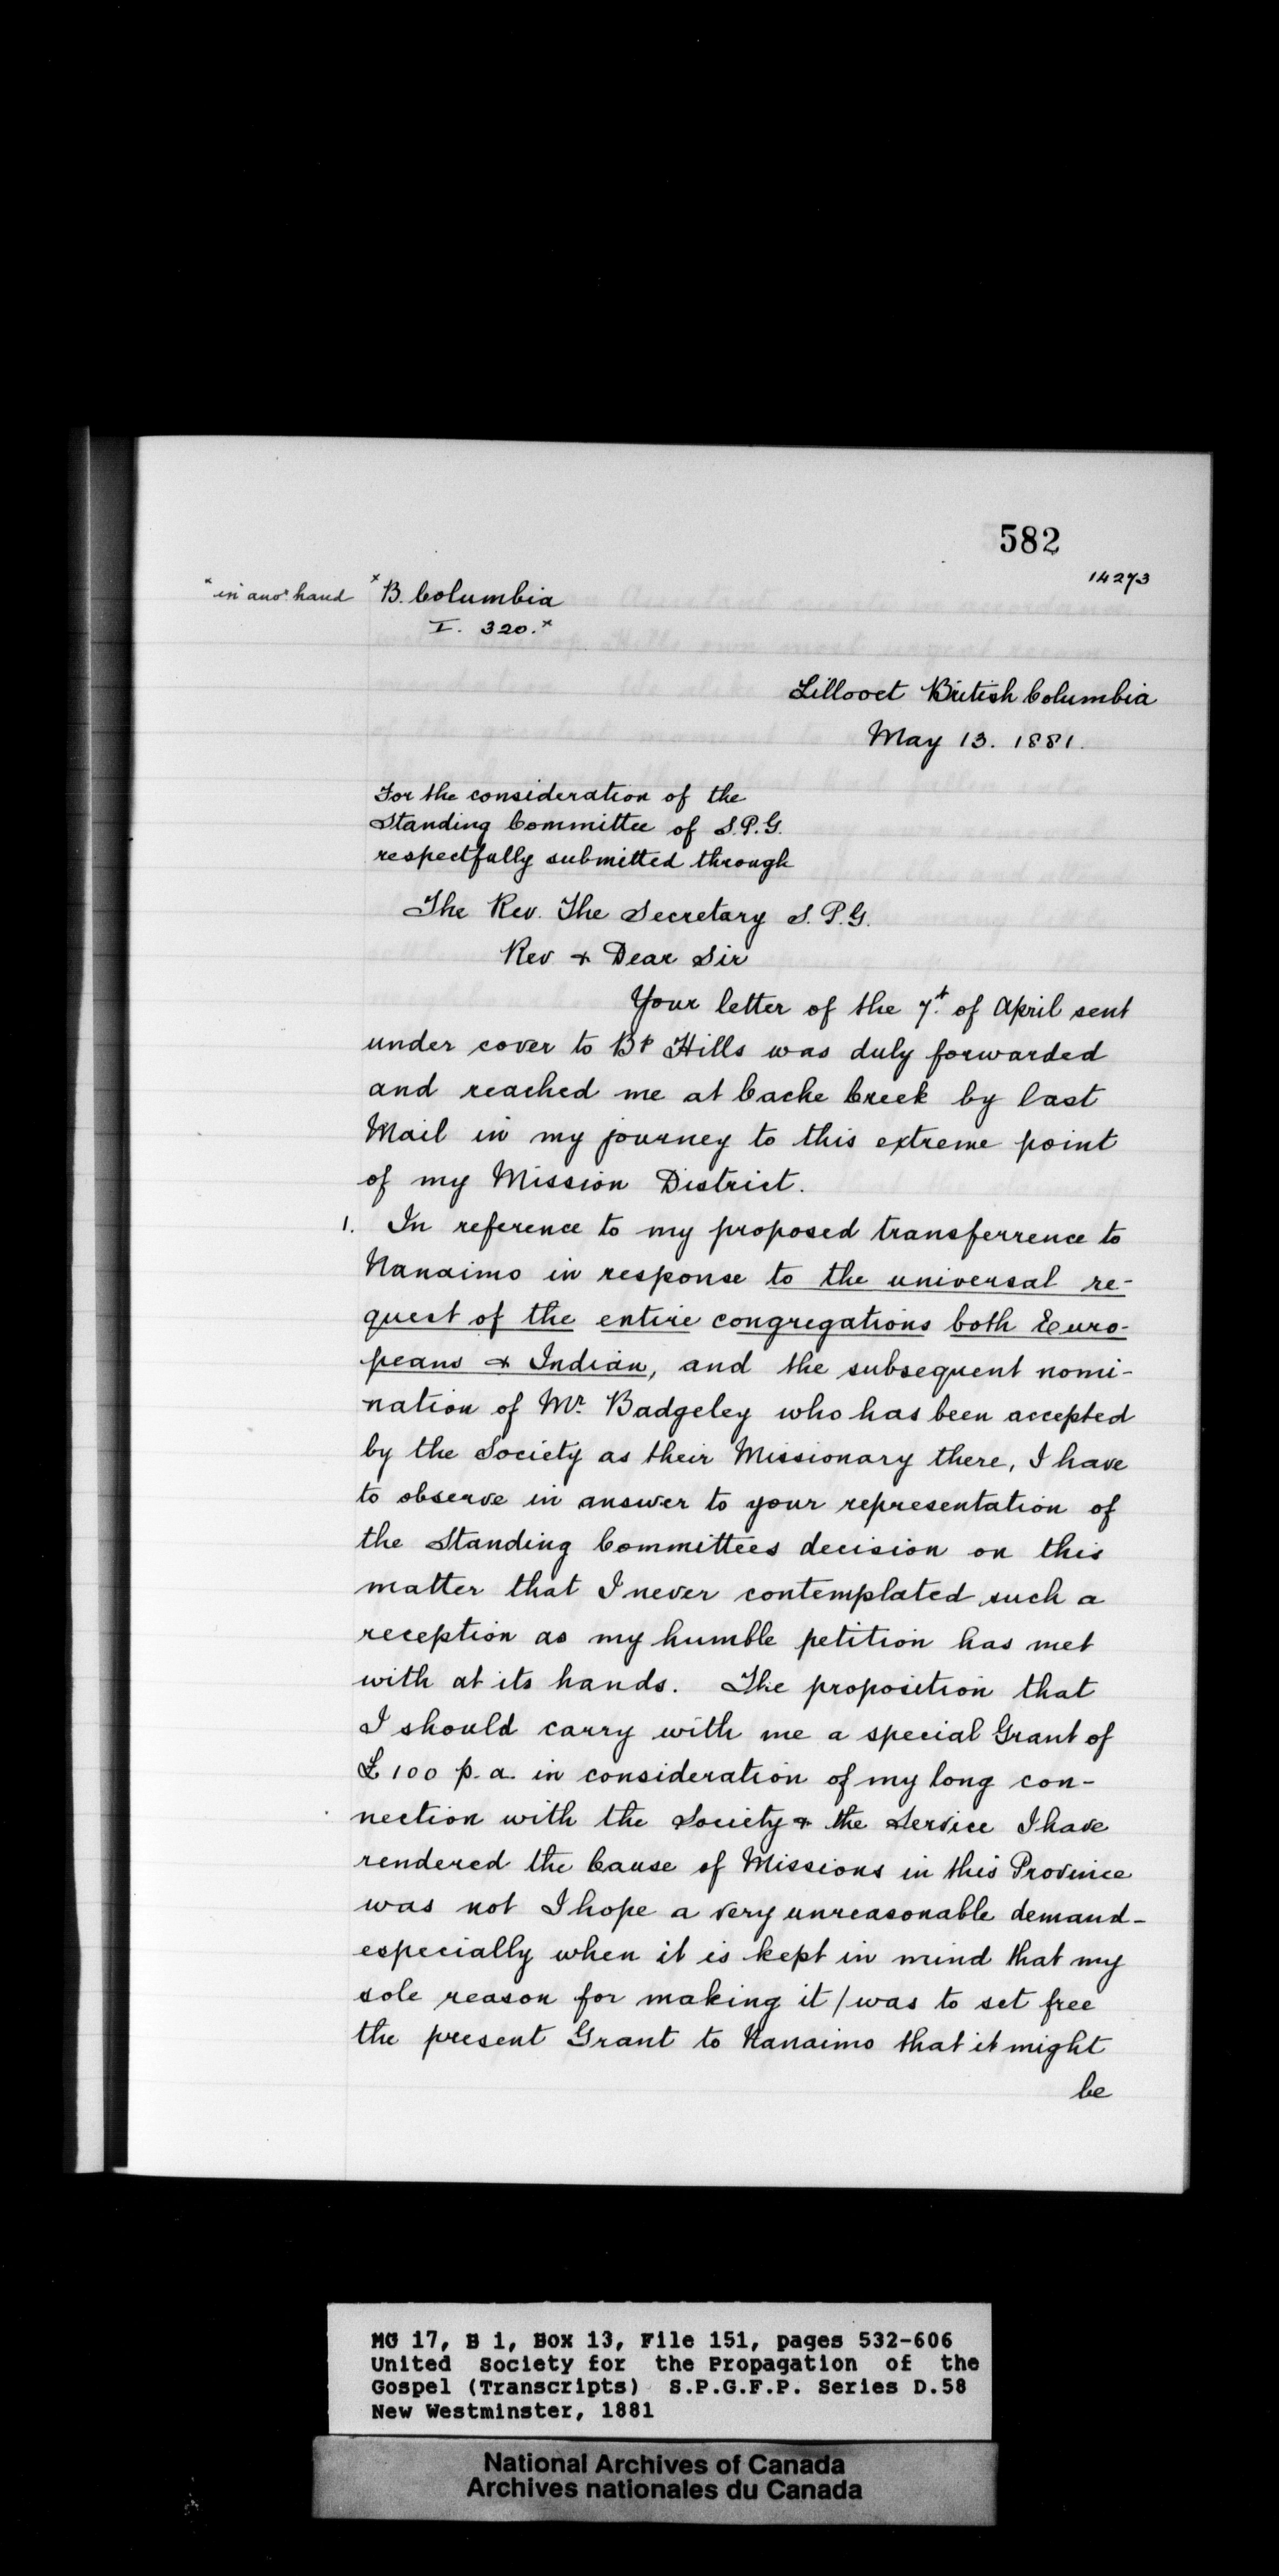 582
14273
x in anor hand
x B. Columbia
I. 320. x
Lillooet British Columbia
May 13. 1881.
For the consideration of the
Standing Committee of S.P.G.
respectfully submitted through
The Rev. The Secretary S. P. G.
Rev & Dear Sir
Your letter of the 7.t of April sent
under cover to Bp Hills was duly forwarded
and reached me at Cache Creek by last
Mail in my journey to this extreme point
of my Mission District.
1. In reference to my proposed transferrence to
Nanaimo in response to the universal re-
quest of the entire congregations both Euro-
peans & Indian, and the subsequent nomi-
nation of Mr. Badgeley who has been accepted
by the Society as their Missionary there, I have
to observe in answer to your representation of
the Standing Committees decision on this
matter that I never contemplated such a
reception as my humble petition has met
with at its hands. The proposition that
I should carry with me a special Grant of
£100 p. a. in consideration of my long con-
nection with the Society & the Service I have
rendered the Cause of Missions in this Province
was not I hope a very unreasonable demand-
especially when it is kept in mind that my
sole reason for making it / was to set free
the present Grant to Nanaimo that it might
be
MG 17, B 1, Box 13, File 151, pages 532-606
United Society for the Propagation of the
Gospel (Transcripts) S.P.G.F.P. Series D.58
New Westminster, 1881
National Archives of Canada
Archives nationales du Canada